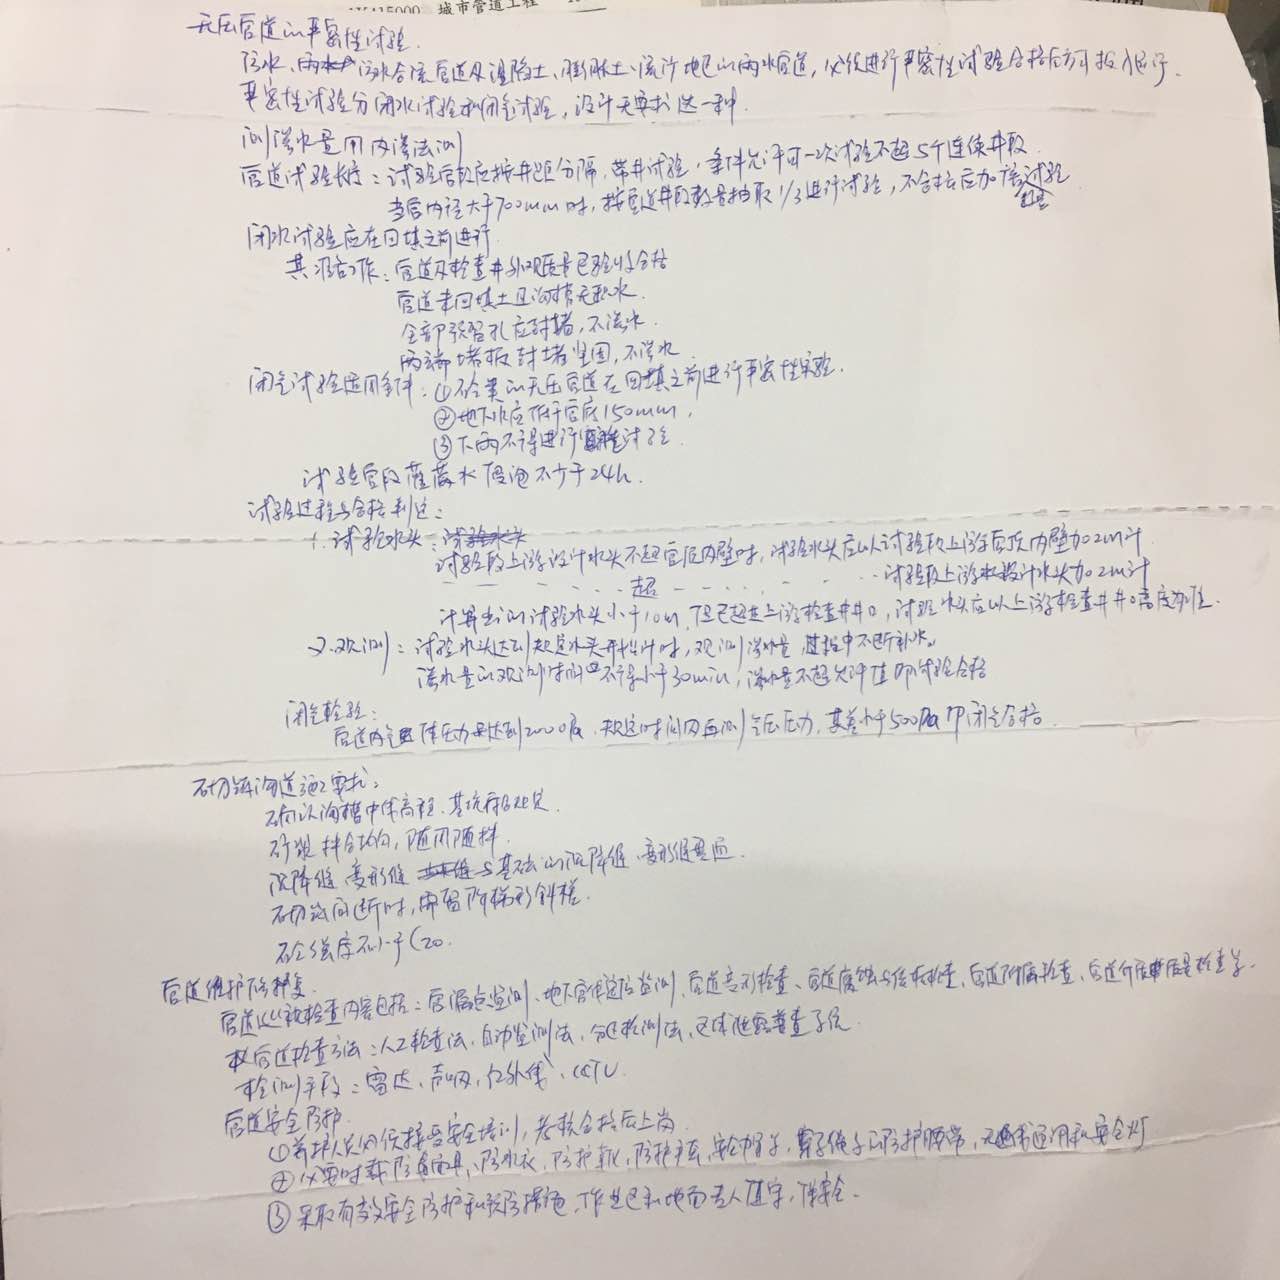 1K415000 城市管道工程
无压管道的严密性试验
污水、雨污水合流管道及湿陷土、膨胀土、流沙地区的雨水管道,必须进行严密性试验合格后方可投入运行.
严密性试验分闭水试验和闭气试验,设计无要求选一种.
测渗水量用内渗法测
管道试验长度:试验管段应按井距分隔,带井试验.条件允许可一次试验不超5个连续井段.
当管内径大于700mm时,按管道井段数量抽取1/3进行试验,不合格应加倍试验
闭水试验应在回填之前进行
其准备工作:管道及检查井外观质量已验收合格
管道未回填土且沟槽无积水.
全部预留孔应封堵,不渗水.
两端堵板封堵坚固,不渗水
闭气试验适用条件:①砼类的无压管道在回填之前进行严密性实验.
②地下水应低于管底150mm.
③下雨不得进行试验.
试验管段灌满水浸泡不少于24h.
试验过程与合格判定:
1.试验水头:
试验段上游设计水头不超管顶内壁时,试验水头应以试验段上游管顶内壁加2m计
超 试验段上游设计水头加2m计
计算出的试验水头小于10m,但已超过上游检查井井口,试验水头应以上游检查井井口高度为准.
2.观测:试验水头达到规定水头开始计时,观测渗水量,过程中不断补水.
渗水量的观测时间不得小于30min,渗水量不超允许值即试验合格
闭气检验:
管道内气体压力达到2000Pa,规定时间内再测气压压力,其差小于500Pa即闭气合格.
砌筑沟道施工要求:
砂浆拌合均匀,随用随拌.
沉降缝、变形缝与基础的沉降缝、变形缝贯通
砌筑间断时,需留阶梯形斜槎.
砼强度不小于C20.
管道维护与修复
管道检查内容包括:管漏点监测、地下管线定位监测、管道变形检查、管道腐蚀与结垢检查、管道附属检查、管道介质质量检查等.
管道检查方法:人工检查法、自动监测法、分区检测法、区域泄露普查系统
检测手段:雷达、声呐、红外线、CCTV.
管道安全防护
①养护人员必须接受安全培训,考核合格后上岗
②必要时戴防毒面具、防水衣、防护靴、防护手套、安全帽等,穿系绳子的防护腰带,无线通讯和安全灯
③采取有效安全防护和预防措施,作业区和地面专人值守,保安全.